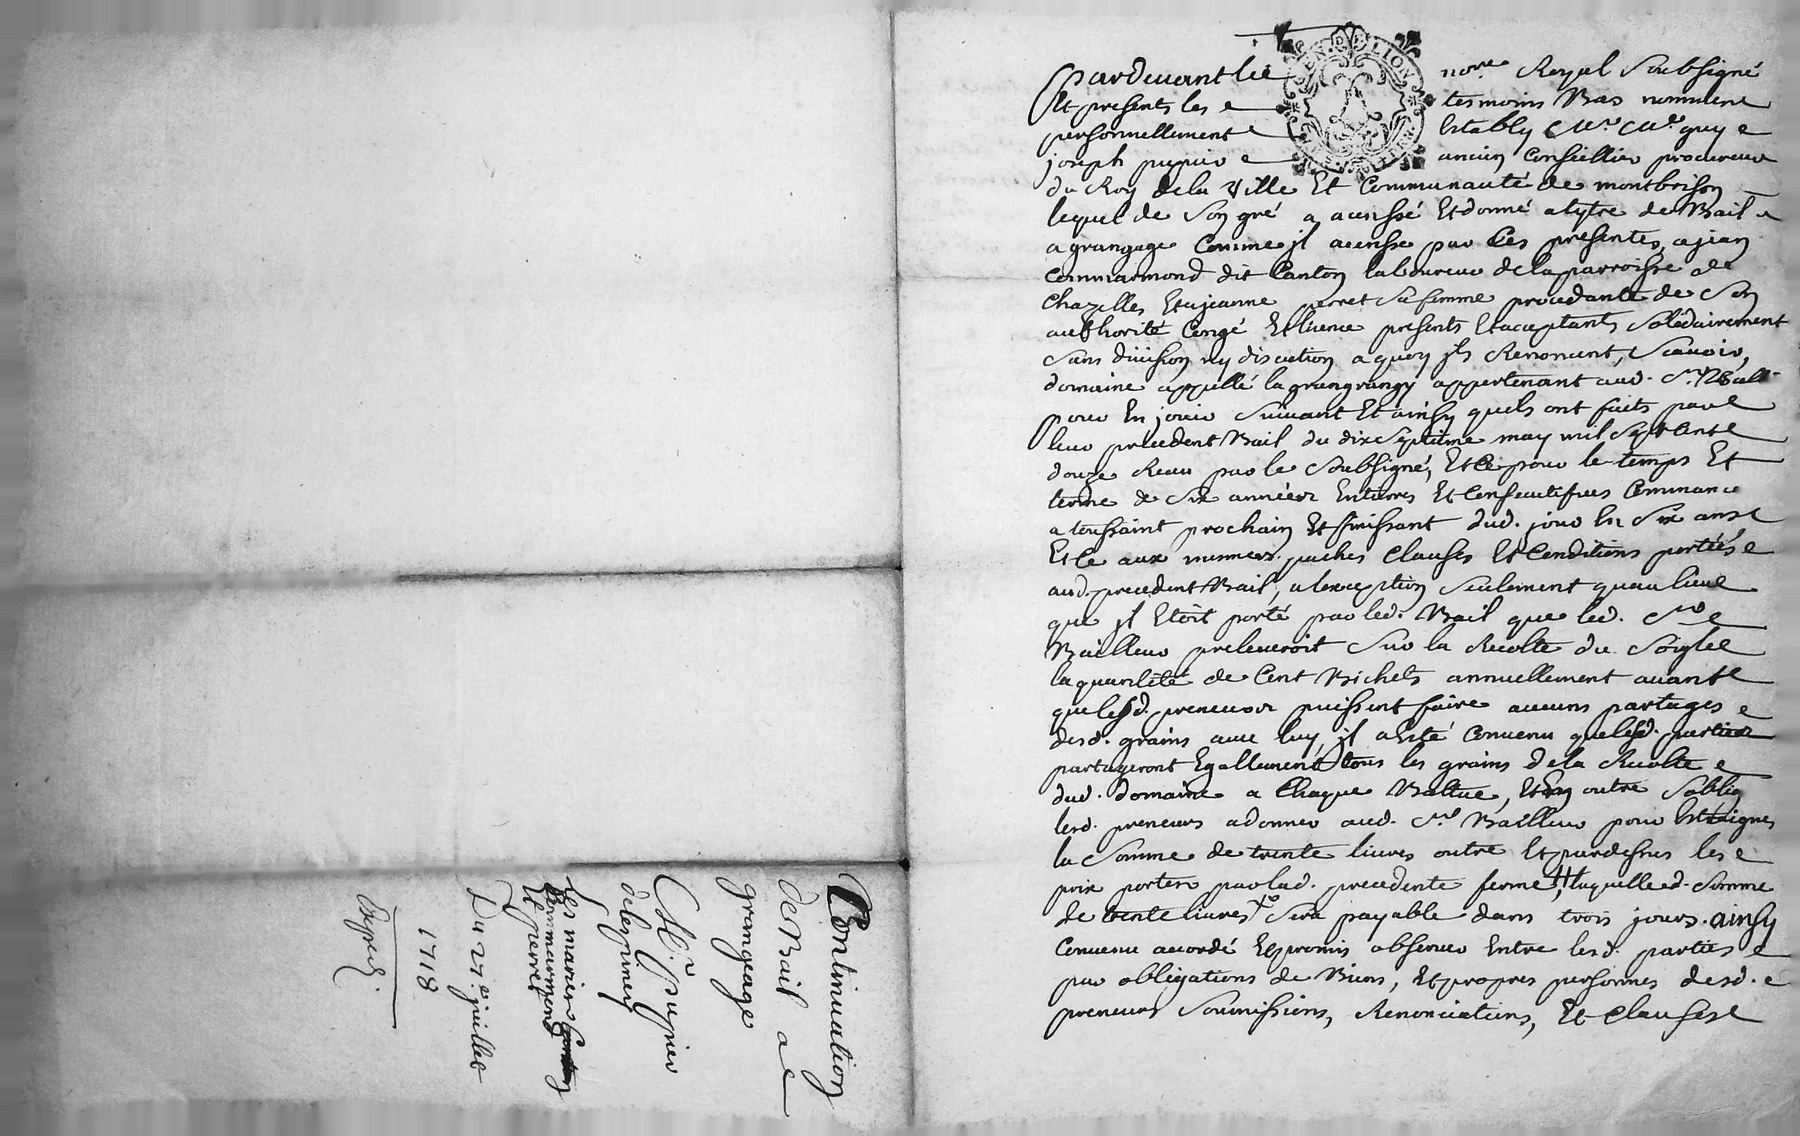 Pardevant le no.re Royal Soubsigné
Et presents les tesmoins Bas nommé
personnellement Estably Me. guy
joseph pupier ancien Conseillier procureur
du Roy dela Ville Et Communauté de montbrison
lequel de Son gré a acensé Et donné atytre de Bail
a grangage Comme jl acense par Ces presentes, a jean
Commarmond dit Canton laboureur dela parroisse de
Chazelles Et a jeanne perret Sa femme procedante de Son
authorité Congé Et licence presents Et acceptants Solidairement
Sans division ny discution a quoy jls Renoncent, Scavoir,
domaine appellé la grangrangy appertenant aud. Sr. Baill.
pour En jouir Suivant Et ainsy quils ont faits par
leur precedent Bail du dix Septiéme may mil Sept Cent
douze Receu par le Soubsigné, Et Ce pour le temps Et
terme de Six années Entieres Et Consecutifves Commance
a toussaint prochain Et finissant dud. jour En Six ans
Et Ce aux mesmes paches Clauses Et Conditions portées
aud. precedent Bail, a lexception Seulement quau lieu
que jl Etoit porté par led. Bail que led. Sr
Bailleur preleveroit Sur la Recolte du Soigle
la quantité de Cent Bichets annuellement avant
que lesd. preneurs puissent faire aucuns partages
desd. grains avec luy, jl a Esté Convenu que lesd. parties
partageront Egallement tous les grains dela Recolte
dud. domaine a Chaque Battue, Et En outre Soblig
lesd. preneurs adonner aud. Sr Bailleur pour Estreignes
la Somme de trente livres outre Et pardessus les
prix portés par lad. precedente ferme, laquelle d. Somme
de trente livres Sera payable dans trois jours. ainsy
Convenu accordé Et promis observer Entre lesd. parties
par obligations de Biens, Et propres personnes desd.
preneurs Soumissions, Renonciations, Et Clauses
Continuation
de Bail a
grangage
Me. pupier
delespinez
Et perret
Du 27e. juillet
1718